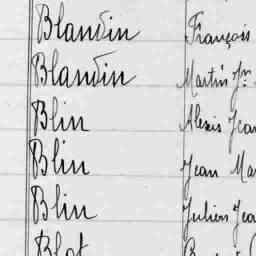 Blandin François
Blandin Martin Jn
Blin Alexis Jean
Blin Jean Mar
Blin Julien Jea
Blot